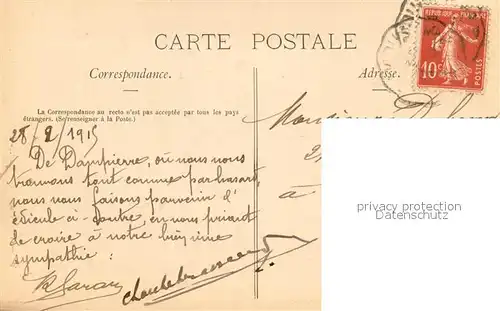 CARTE POSTALE
RÉPUBLIQUE FRANÇAISE
10c
POSTES
Correspondance.
Adresse.
La Correspondance au recto n'est pas acceptée par tous les pays
étrangers. (Se renseigner à la Poste.)
28-2/1915
Monsieur
De Dampierre, où nous nous
trouvons tout comme par hasard,
nous vous faisons parvenir l'
édicule ci-contre, en vous priant
de croire à notre bien vive
sympathie :
à
privacy protection
Datenschutz